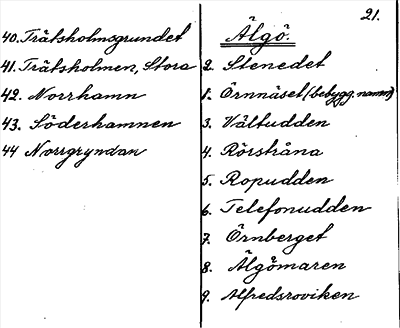 21.
40. Trätsholmsgrundet
41. Trätsholmen, Stora
42. Norrhamn
43. Söderhamnen
44 Norrgryndan
Älgö.
2. Stenedet
1. Örnnäset (bebygg. namn)
3. Vältudden
4. Rörstråna
5. Ropudden
6. Telefonudden
7. Örnberget
8. Älgömaren
9. Alfredsroviken